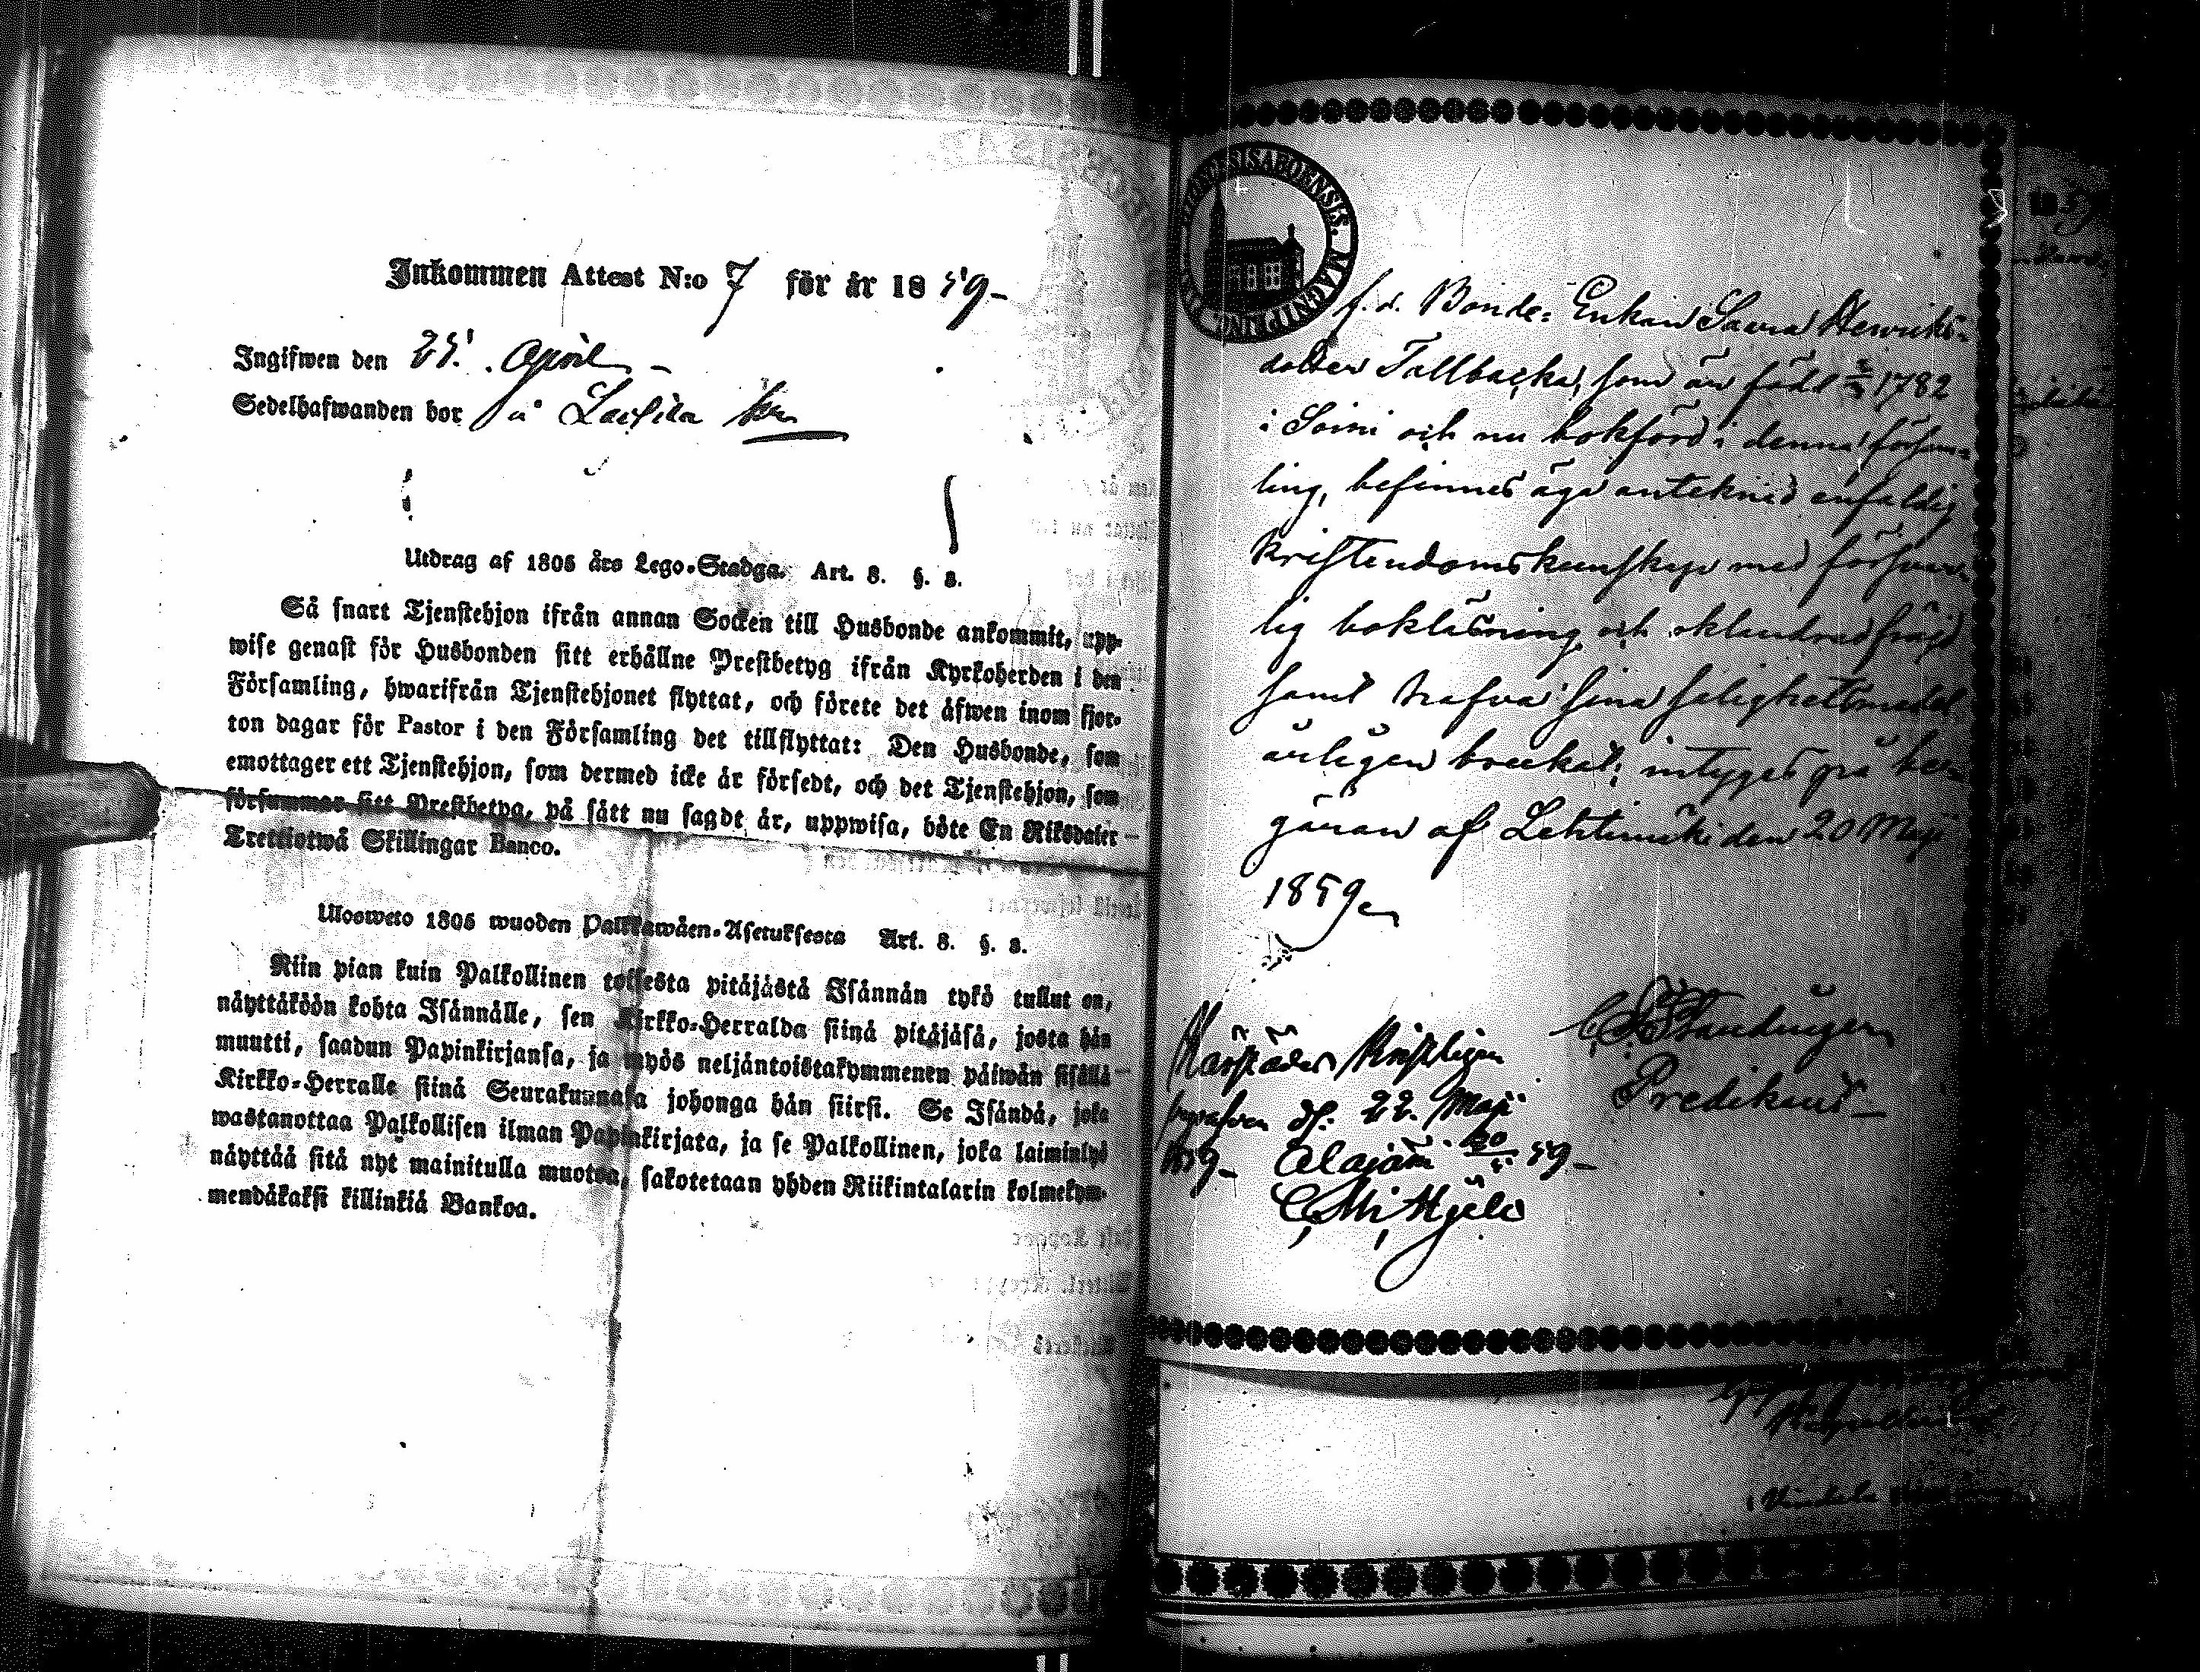 Inkommen Attest N:o 7 för år 1859
Ingifwen den 25. April
Sedelhafwanden bor å
Utdrag af 1805 års Lego-Stadga. Art. 8. §. 8.
Så snart Tjenstehjon ifrån annan Socken till Husbonde ankommit, upp-
wise genast för Husbonden sitt erhållne Prestbetyg ifrån Kyrkoherden i den
Församling, hwarifrån Tjenstehjonet flyttat, och förete det äfwen inom fjor-
ton dagar för Pastor i den Församling det tillflyttat: Den Husbonde, som
emottager ett Tjenstehjon, som dermed icke är försedt, och det Tjenstehjon, som
försummar sitt Prestbetyg, på sätt nu sagdt är, uppwisa, böte En Riksdaler
Trettiotwå Skillingar Banco.
Ulosweto 1805 wuoden Palkkawäen-Asetuksesta Art. 8. §. 8.
Niin pian kuin Palkollinen toisesta pitäjästä Isännän tykö tullut on,
näyttäköön kohta Isännälle, sen Kirkko-Herralda siinä pitäjäsä, josta hän
muutti, saadun Papinkirjansa, ja myös neljäntoistakymmenen päiwän sisällä
Kirkko-Herralle siinä Seurakunnasa johonga hän siirsi. Se Isändä, joka
wastanottaa Palkollisen ilman Papinkirjata, ja se Palkollinen, joka laiminlyö
näyttää sitä nyt mainitulla muotoa, sakotetaan yhden Riikintalarin kolmekym-
mendäkaksi killinkiä Bankoa.
DIOECESIS ABOENSIS.
f. d. Bonde-Enkan Henriks-
dotter Tallbacka, som är född 1782
i Soini och nu bokförd i denna försam-
ling, befinnes äga antecknad enfaldig
kristendomskunskap med försvar-
lig bokläsning och oklandrad frägd
samt hafva sina salighetsmedel
årligen brukat; intygas på be-
gäran af Lehtimäki den 20 Maji
1859
Predikant
den 22. Maji
1859 Alajärvi 59